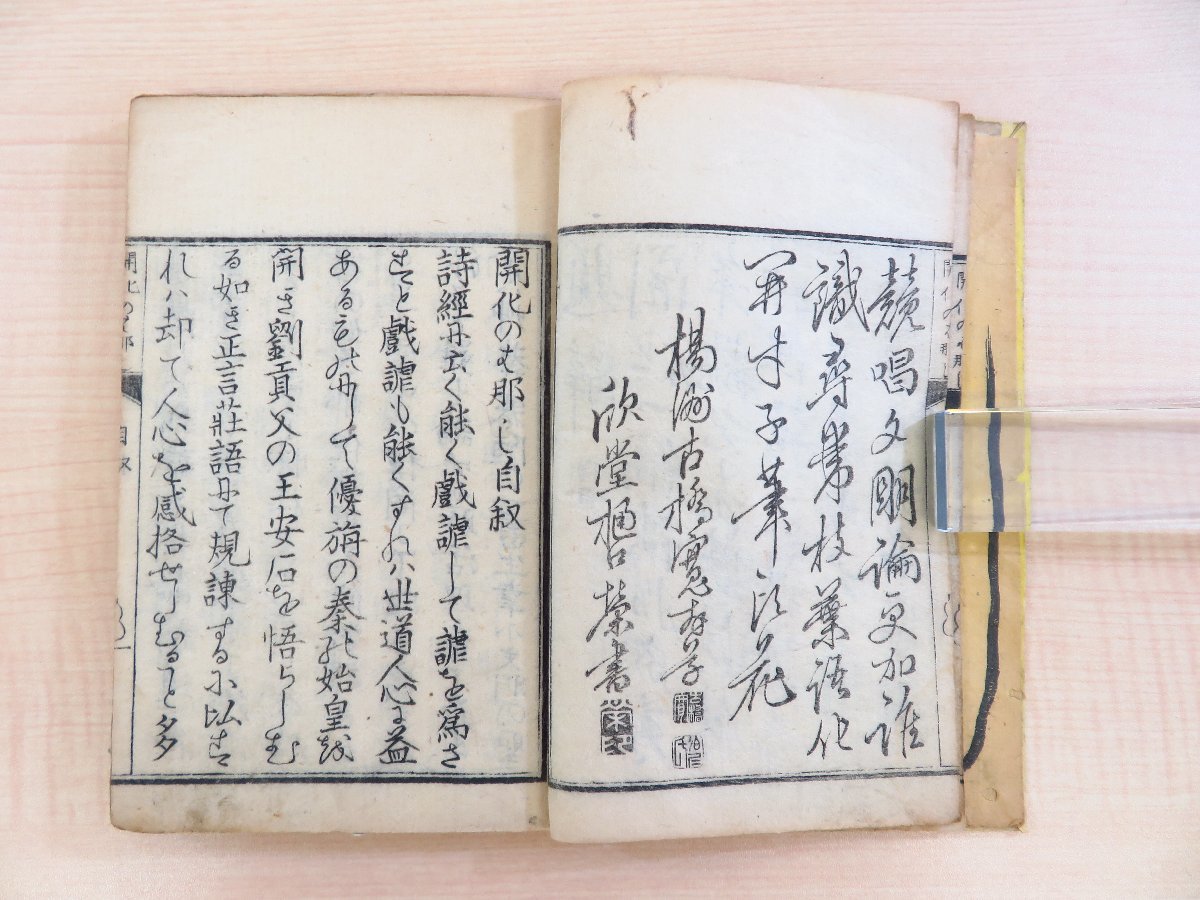 競唱文明論更加誰
識尋常枝葉語化
開才子筆頭花
楊洲古橋寛存草
欣堂樋口榮書
開化のはなし自叙
詩經に云く能く戯謔して謔を爲さ
ずと戯謔も能くすれバ世道人心に益
あるものにして優旃の秦の始皇を
開き劉貢父の王安石を悟らしむ
る如き正言莊語にて規諌するに以す
れハ却て人心を感格せしむること多
開化のはなし
自叙
一